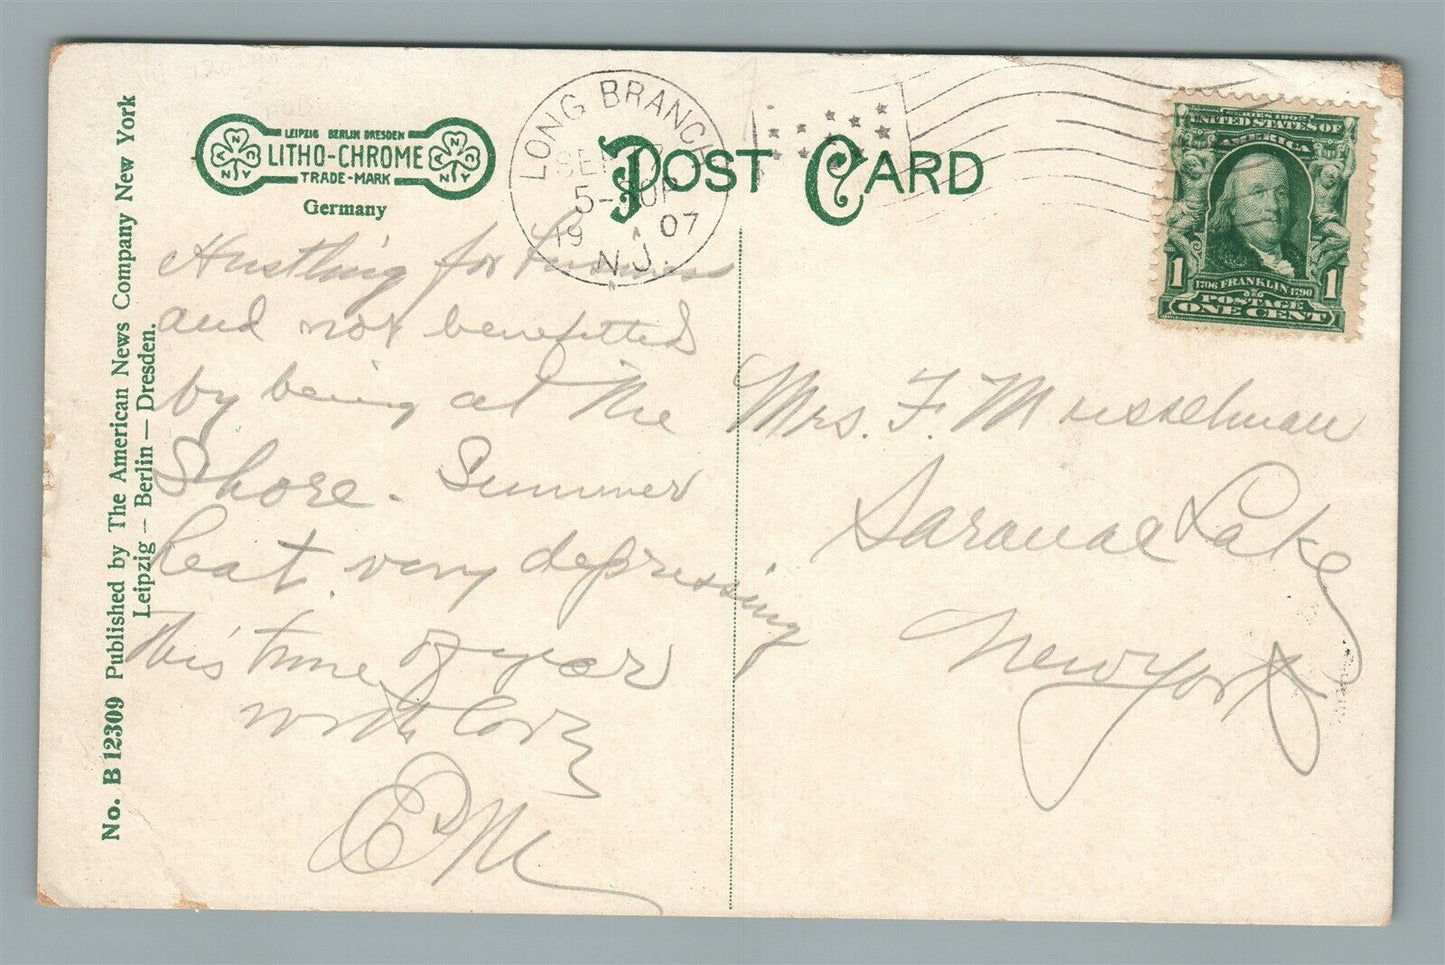 LEIPZIG BERLIN DRESDEN
LITHO-CHROME
TRADE-MARK
Germany
POST CARD
LONG BRANCH
SEP
5-
19 07
N.J.
UNITED STATES OF
AMERICA
1706 FRANKLIN 1790
1 1
POSTAGE
ONE CENT
No. B 12309 Published by The American News Company New York
Leipzig — Berlin — Dresden.
Hustling for business
and not benefitted
by being at the
Shore. Summer
heat. very depressing
this time of year
with
EM
Mrs. F. M
Saranac Lake
New York